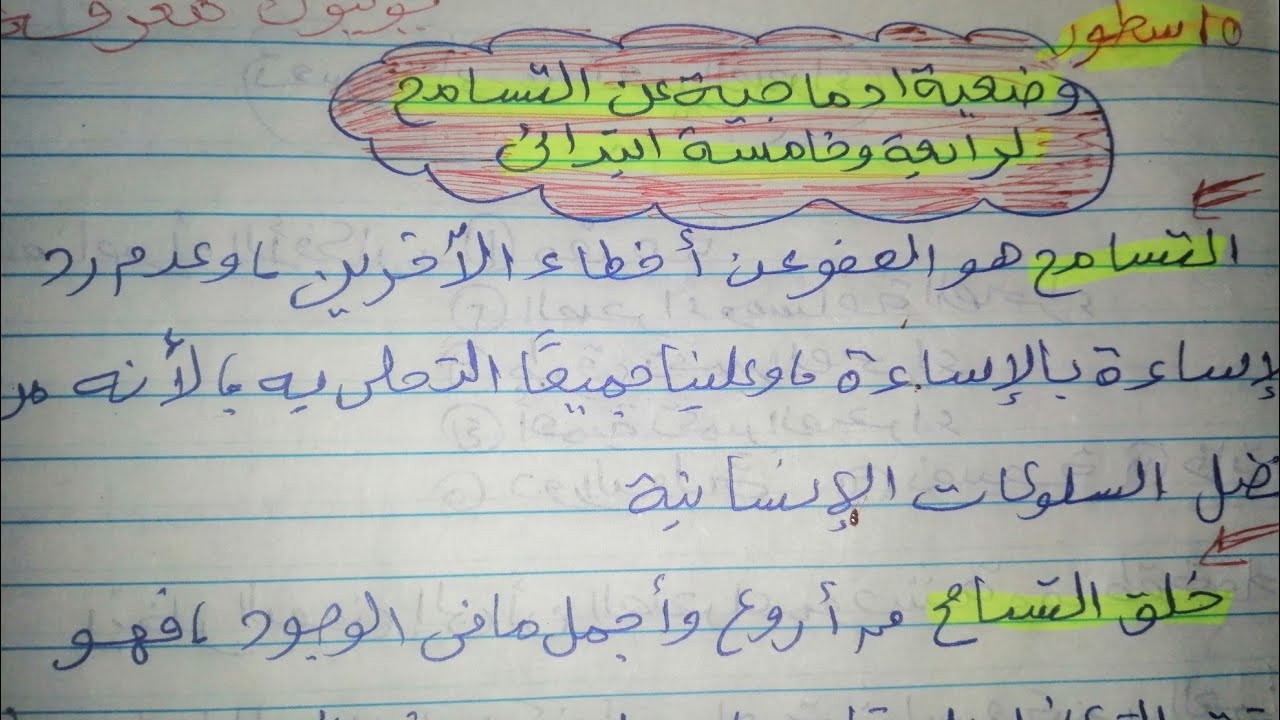 يوتيوب معرفة
10 سطور
وضعية ادماجية عن التسامح
لرابعة وخامسة ابتدائي
التسامح هو العفو عن أخطاء الآخرين، وعدم رد
لإساءة بالإساءة، وعلينا جميعًا التحلي به، لأنه من
فضل السلوكات الإنسانية
خلق التسامح من أروع وأجمل ما في الوجود، فهو